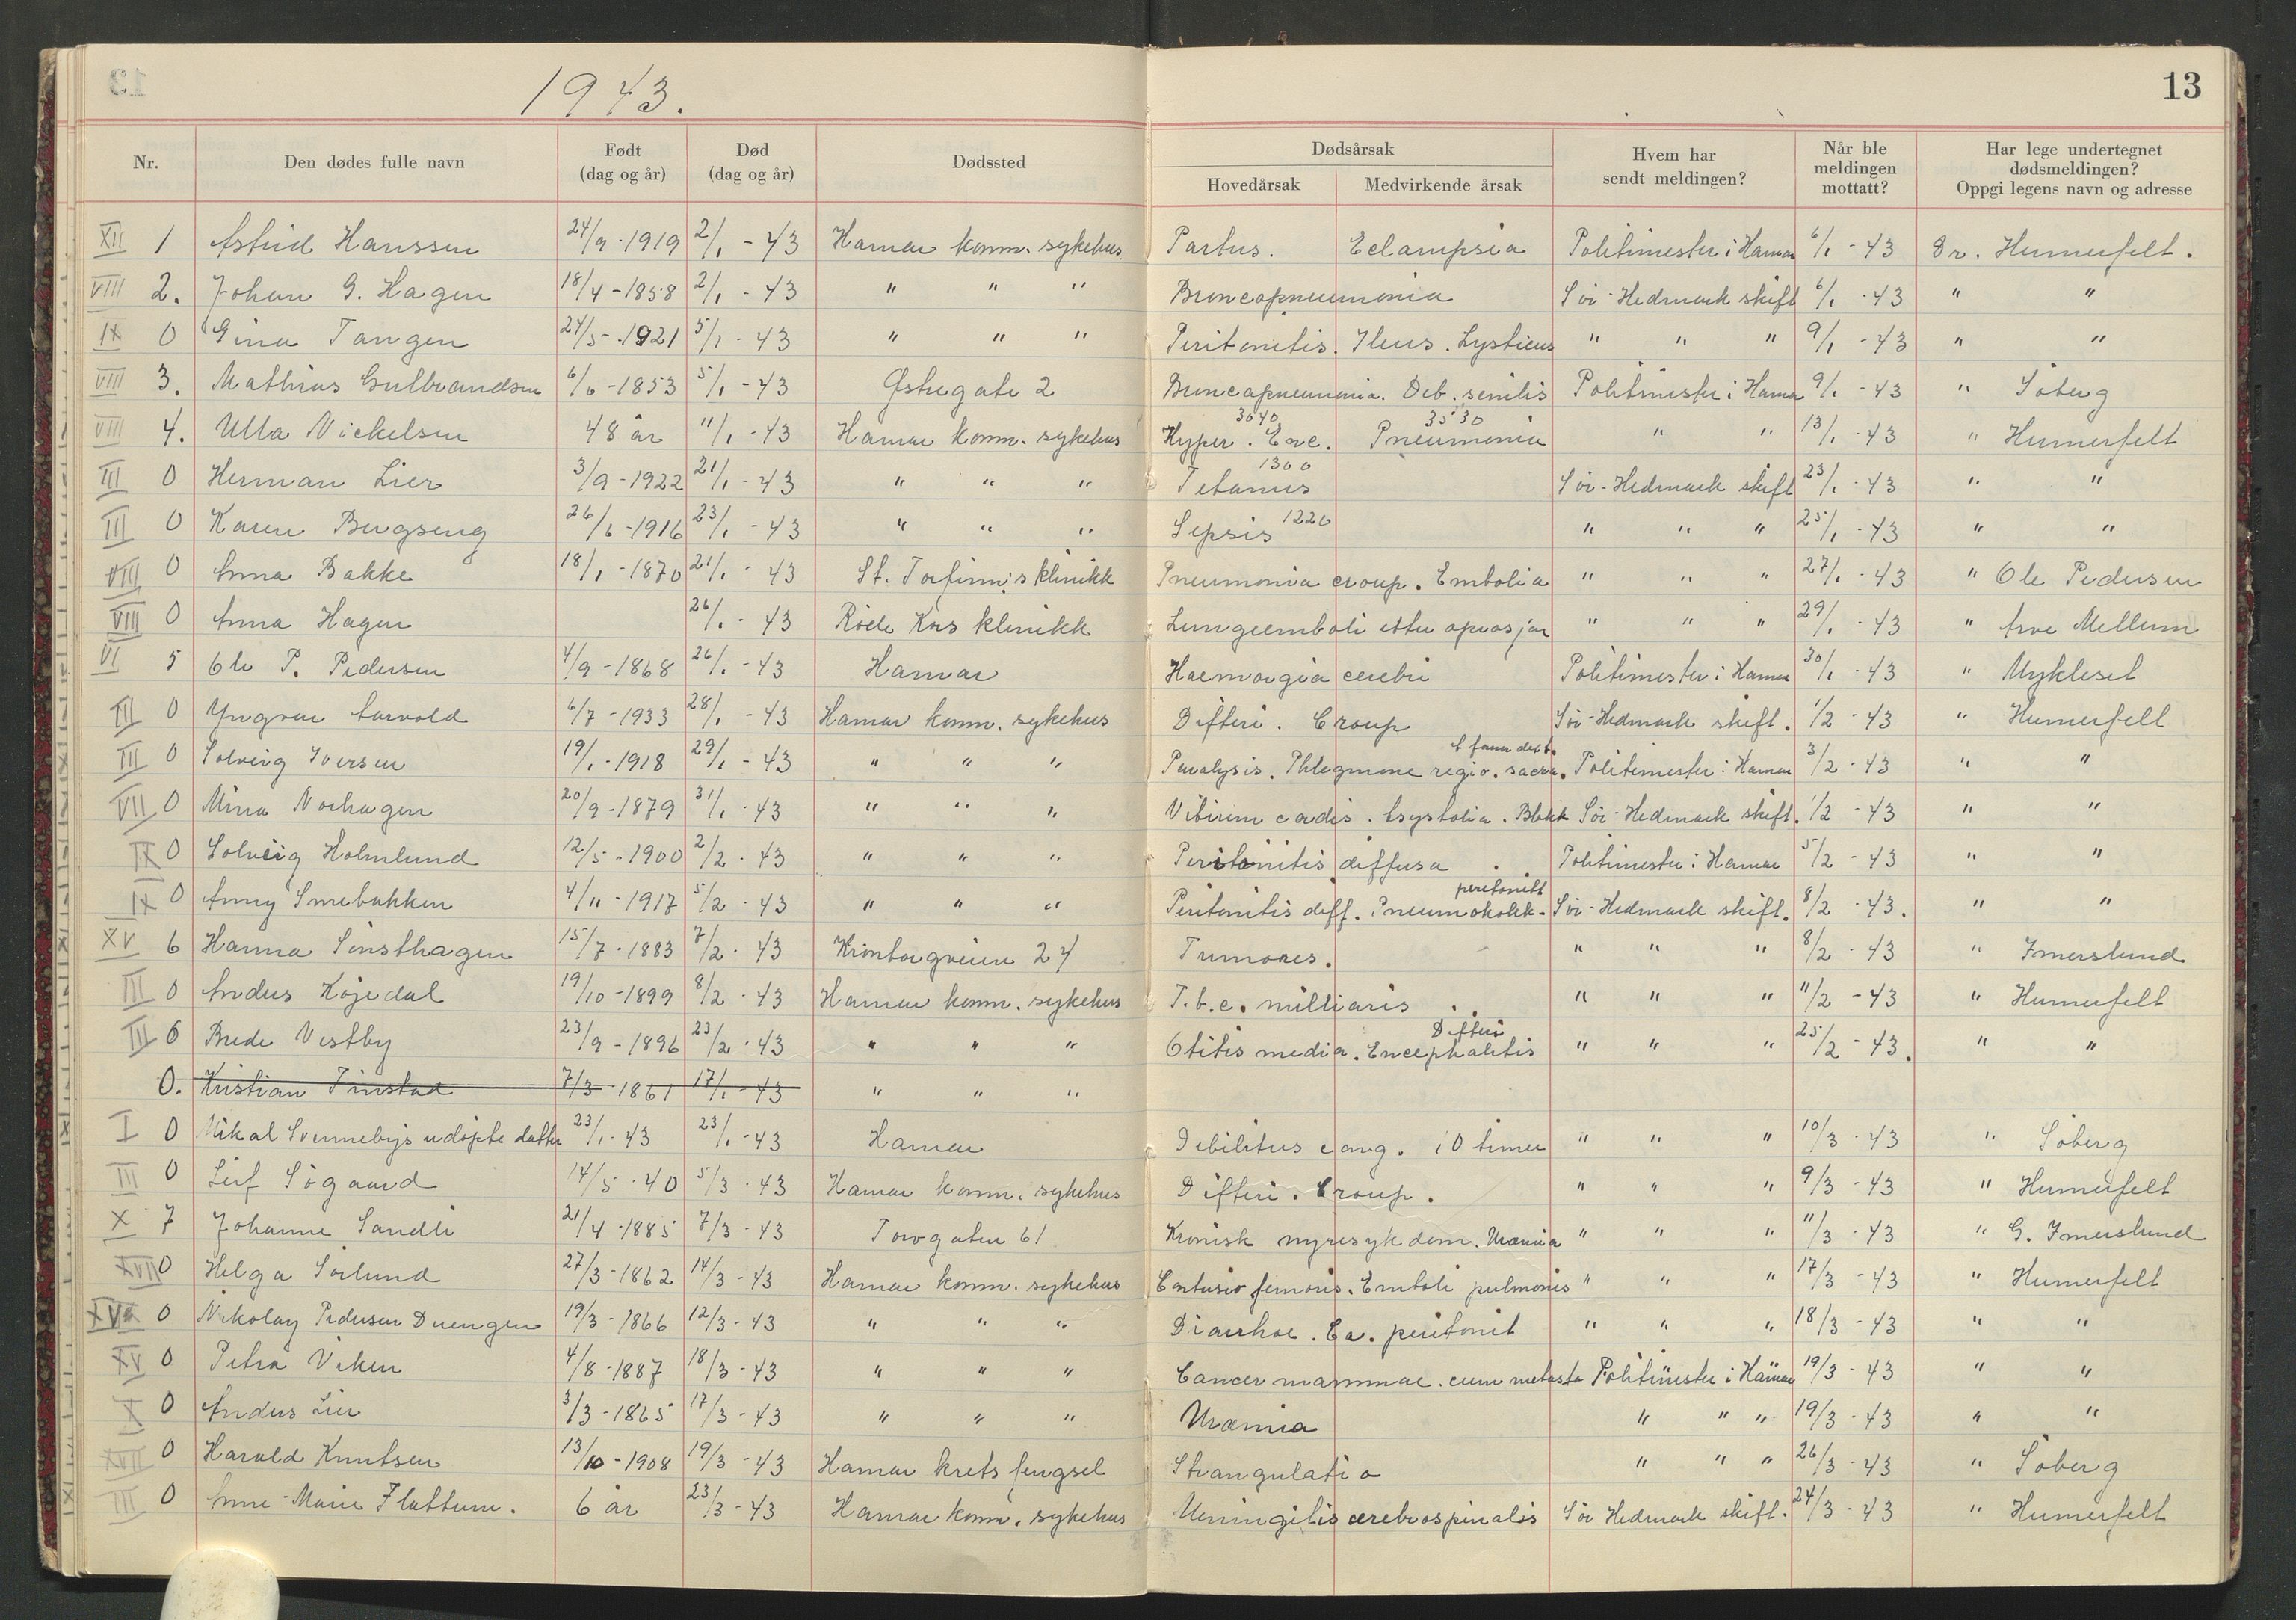 13
1943.
Nr. Den dødes fulle navn Født (dag og år) Død (dag og år) Dødssted Dødsårsak Hovedårsak Medvirkende årsak Hvem har sendt meldingen? Når ble meldingen mottatt? Har lege undertegnet dødsmeldingen? Oppgi legens navn og adresse
XII 1 Astrid Hanssen 24/9-1919 2/1-43 Hamar komm. sykehus. Partus. Eclampsia Politimester i Hamar 6/1-43 Dr. Humerfelt.
VIII 2. Johan G. Hagen 18/4-1858 2/1-43 " " " Broncopneumonia Sör-Hedmark skift 6/1-43 " "
IX 0 Gina Tangen 24/5-1921 5/1-43 " " " Peritonitis. Ileus. Lysticus " " " 9/1-43 " "
VIII 3. Mathias Gulbrandsen 6/6-1853 5/1-43 Østregate 2 Broncopneumonia. Deb. senilis Politimester i Hamar 9/1-43 " Söberg
VIII 4. Ulla Nickelsen 48 år 11/1-43 Hamar komm. sykehus Hyper. Enc. 3040 Pneumonia 3530 " " 13/1-43 " Humerfelt
III 0 Herman Lier 3/9-1922 21/1-43 " " " Tetanus 1300 Sör-Hedmark skift 23/1-43 " "
III 0 Karen Bergseng 26/6-1916 23/1-43 " " " Sepsis 1220 " " " 25/1-43 " "
VIII 0 Anna Bakke 18/1-1870 21/1-43 St. Torfinn's klinikk Pneumonia croup. Embolia " " " 27/1-43 " Ole Pedersen
VIII 0 Anna Hagen 26/1-43 Röde Kors klinikk Lungeemboli etter oprasjon " " " 29/1-43 " Arve Mellum
VI 5 Ole P. Pedersen 4/9-1868 26/1-43 Hamar Haemorgia cerebri Politimester i Hamar 30/1-43 " Mykleset
III 0 Yngvar Aarvold 6/7-1933 28/1-43 Hamar komm. sykehus Difteri. Croup Sör-Hedmark skift. 1/2-43 " Humerfelt
III 0 Solveig Iversen 19/1-1918 29/1-43 " " " Paralysis. Phlegmone regio. sacra. Politimester i Hamar 3/2-43 " "
VII 0 Mina Norhagen 20/9-1879 31/1-43 " " " Vitium cordis. Asystolia. Blokk Sör-Hedmark skift. 1/2-43 " "
IX 0 Solveig Holmlund 12/5-1900 2/2-43 " " " Peritonitis diffusa. Politimester i Hamar 5/2-43 " "
IX 0 Anny Smebakken 4/11-1917 5/2-43 " " " Peritonitis diff. Pneumokokk- peretonitt Sör-Hedmark skift. 8/2-43. " "
XV 6 Hanna Sinsthagen 15/7-1883 7/2-43 Kronborgveien 24 Tumores. " " " 8/2-43 " Imerslund
III 0 Anders Köjedal 19/10-1899 8/2-43 Hamar komm. sykehus T.b.c. milliaris. " " " 11/2-43 " Humerfelt
III 0 Brede Vestby 23/9-1896 23/2-43 " " " Otitis media. Encephalitis Difteri " " " 25/2-43. " "
0. Kristian Finstad 7/3-1861 17/1-43 " " "
I 0 Mikal Svennebys udöpte datter 23/1-43 23/1-43 Hamar Debilitus cong. 10 timer " " " 10/3-43 " Söberg
III 0 Leif Sögaard 14/5-40 5/3-43 Hamar komm. sykehus Difteri. Croup. " " " 9/3-43 " Humerfelt
X 7 Johanne Sandli 21/4-1885 7/3-43 Torvgaten 61 Kronisk nyresykdom. Uræmia " " " 11/3-43 " G. Imerslund
XVII 0 Helga Sörlund 27/3-1862 14/3-43 Hamar komm. sykehus Contusio femoris. Emboli pulmonis " " " 17/3-43 " Humerfelt
0 Nikolay Pedersen Duengen 19/3-1866 12/3-43 " " " Diarrhoe. Ca. peritonit " " " 18/3-43 " "
XV 0 Petra Viken 4/8-1887 18/3-43 " " " Cancer mammae. cum metasta Politimester i Hamar 19/3-43 " "
X 0 Anders Lier 3/3-1865 17/3-43 " " " Uræmia " " " 19/3-43 " "
XVII 0 Harald Knutsen 13/10-1908 19/3-43 Hamar krets fengsel Strangulatio " " " 26/3-43 " Söberg
III 0 Anne-Marie Flattum. 6 år 23/3-43 Hamar komm. sykehus Meningitis cerebrospinalis Sör Hedmark skift. 24/3-43 " Humerfelt